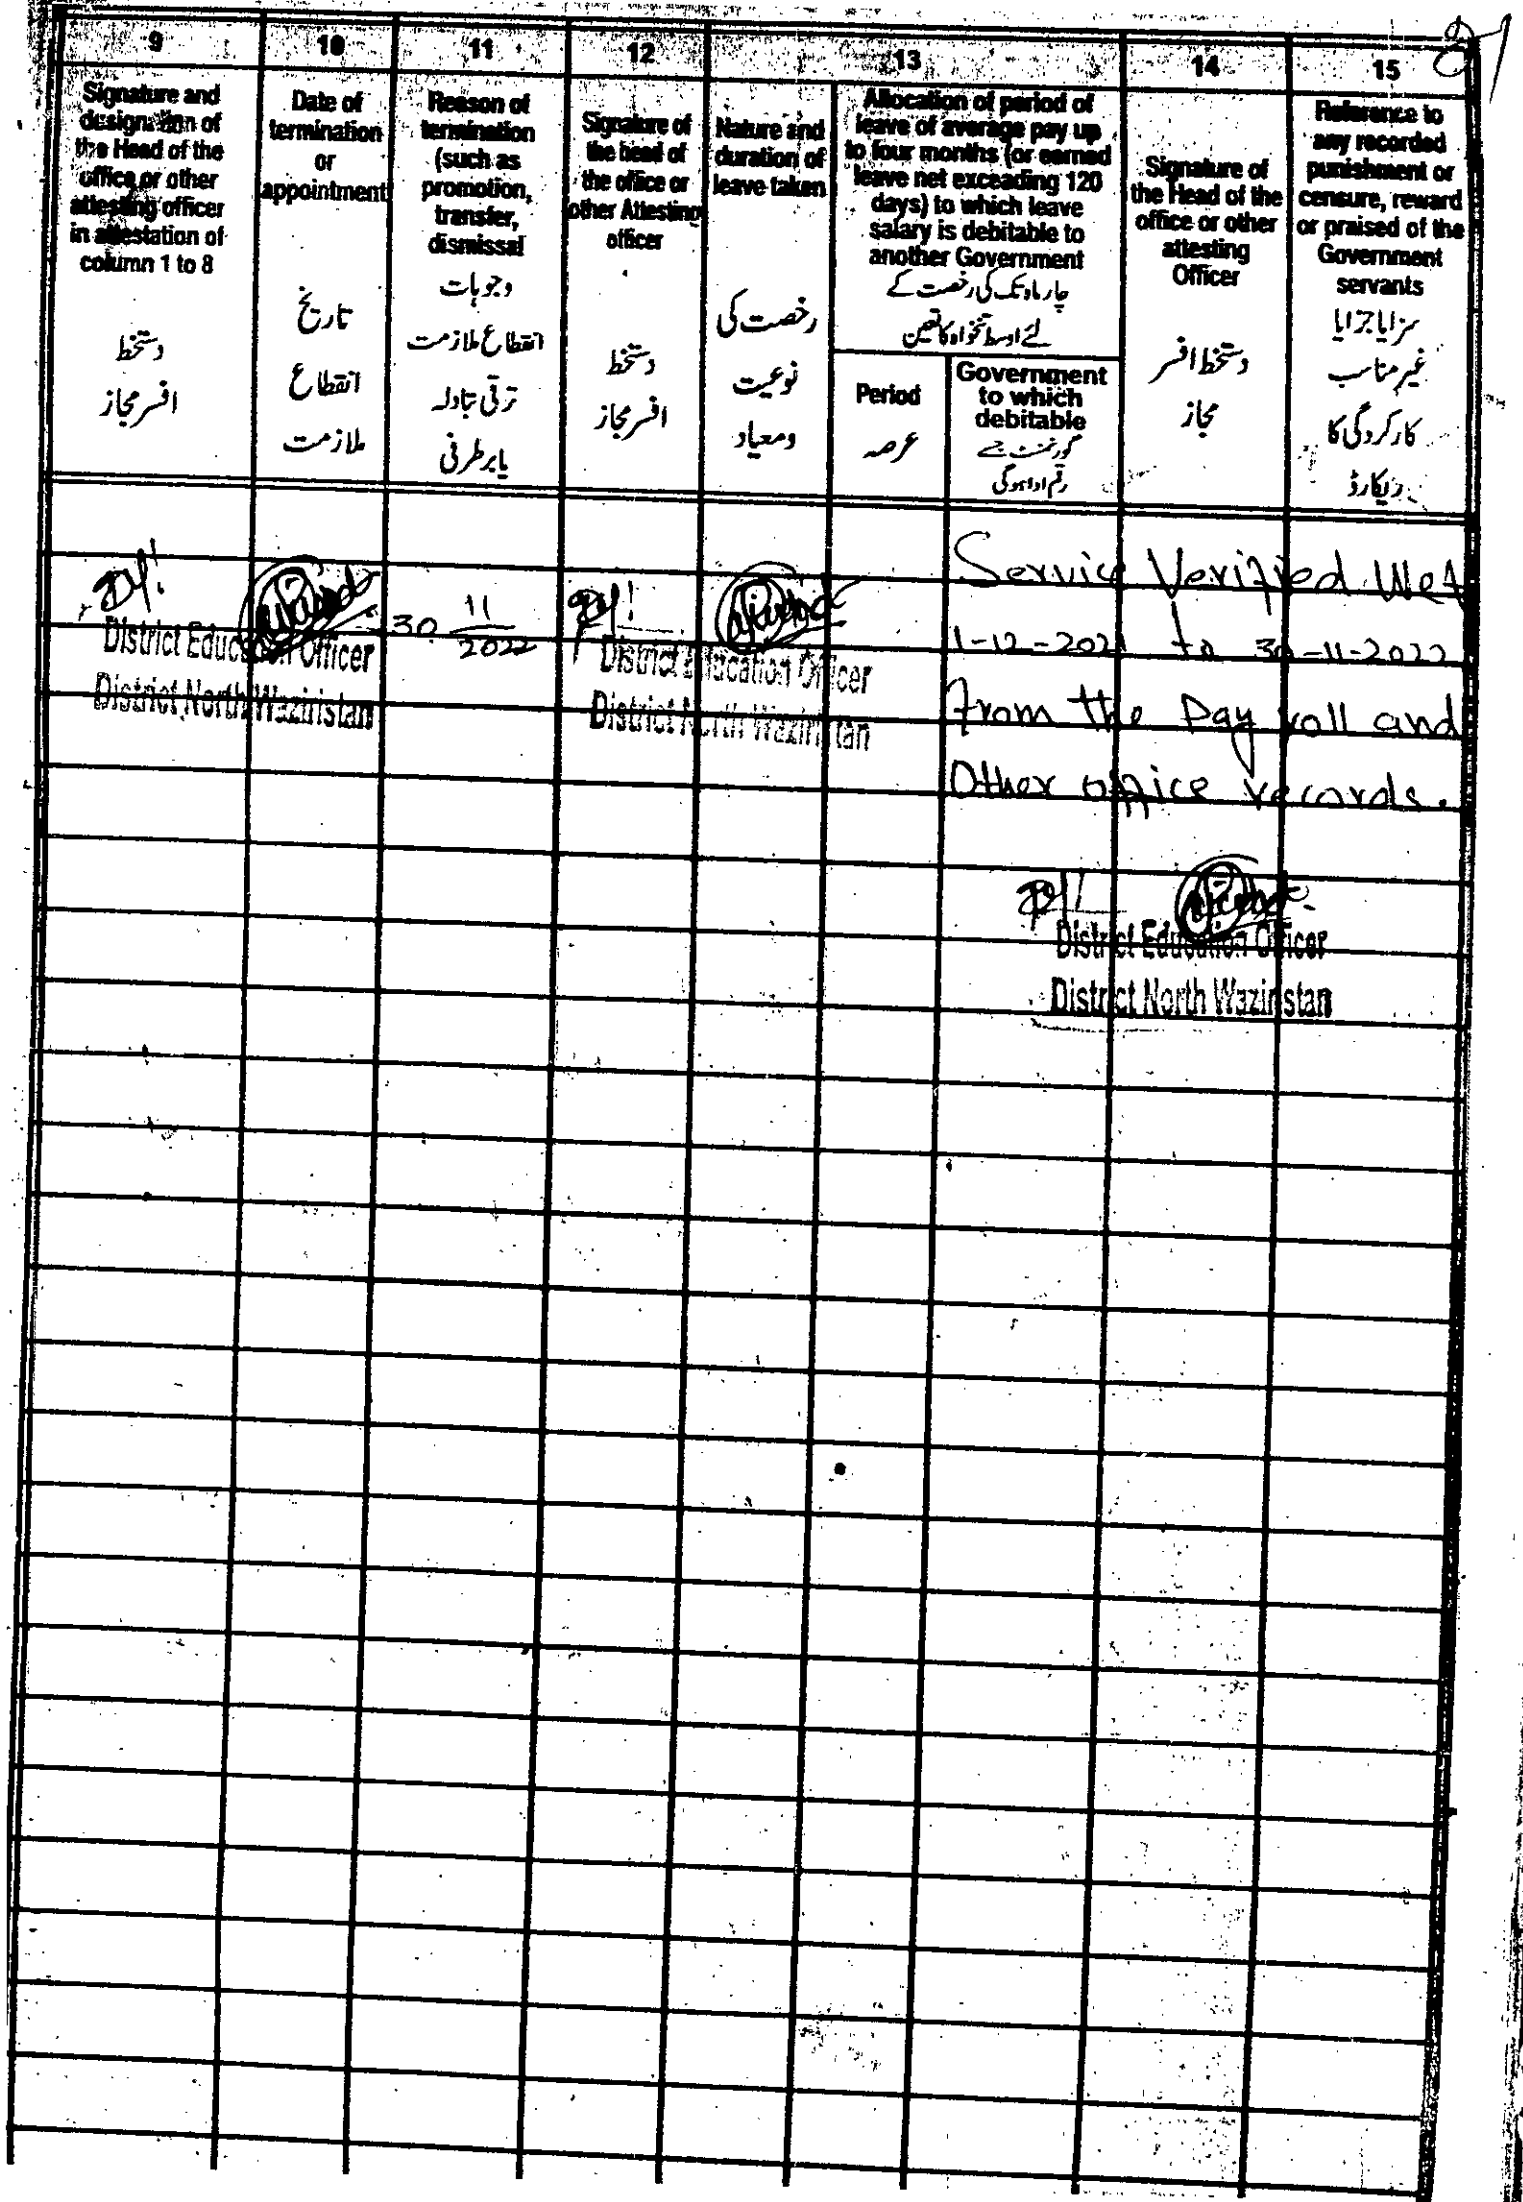 9
10
11
12
13
14
15
Signature and
designation of
the Head of the
office or other
attesting officer
in attestation of
column 1 to 8
دستخط
افسر مجاز
Date of
termination
or
appointment
تاریخ
انقطاع
ملازمت
Reason of
termination
(such as
promotion,
transfer,
dismissal
وجوہات
انقطاع ملازمت
ترقی تبادلہ
یا برطرفی
Signature of
the head of
the office or
other Attesting
officer
دستخط
افسر مجاز
Nature and
duration of
leave taken
رخصت کی
نوعیت
ومعیاد
Allocation of period of
leave of average pay up
to four months (or earned
leave net exceeding 120
days) to which leave
salary is debitable to
another Government
چار ماہ تک کی رخصت کے
لئے اوسط تنخواہ کا تعین
Period
عرصہ
Government
to which
debitable
گورنمنٹ جسے
رقم ادا ہوگی
Signature of
the Head of the
office or other
attesting
Officer
دستخط افسر
مجاز
Reference to
any recorded
punishment or
censure, reward
or praised of the
Government
servants
سزا یا جزا یا
غیر مناسب
کارکردگی کا
ریکارڈ
District Education Officer
District North Waziristan
30 11
2022
District Education Officer
District North Waziristan
Service Verified Wef
1-12-2021 to 30-11-2022
from the Pay roll and
Other office records.
District Education Officer
District North Waziristan